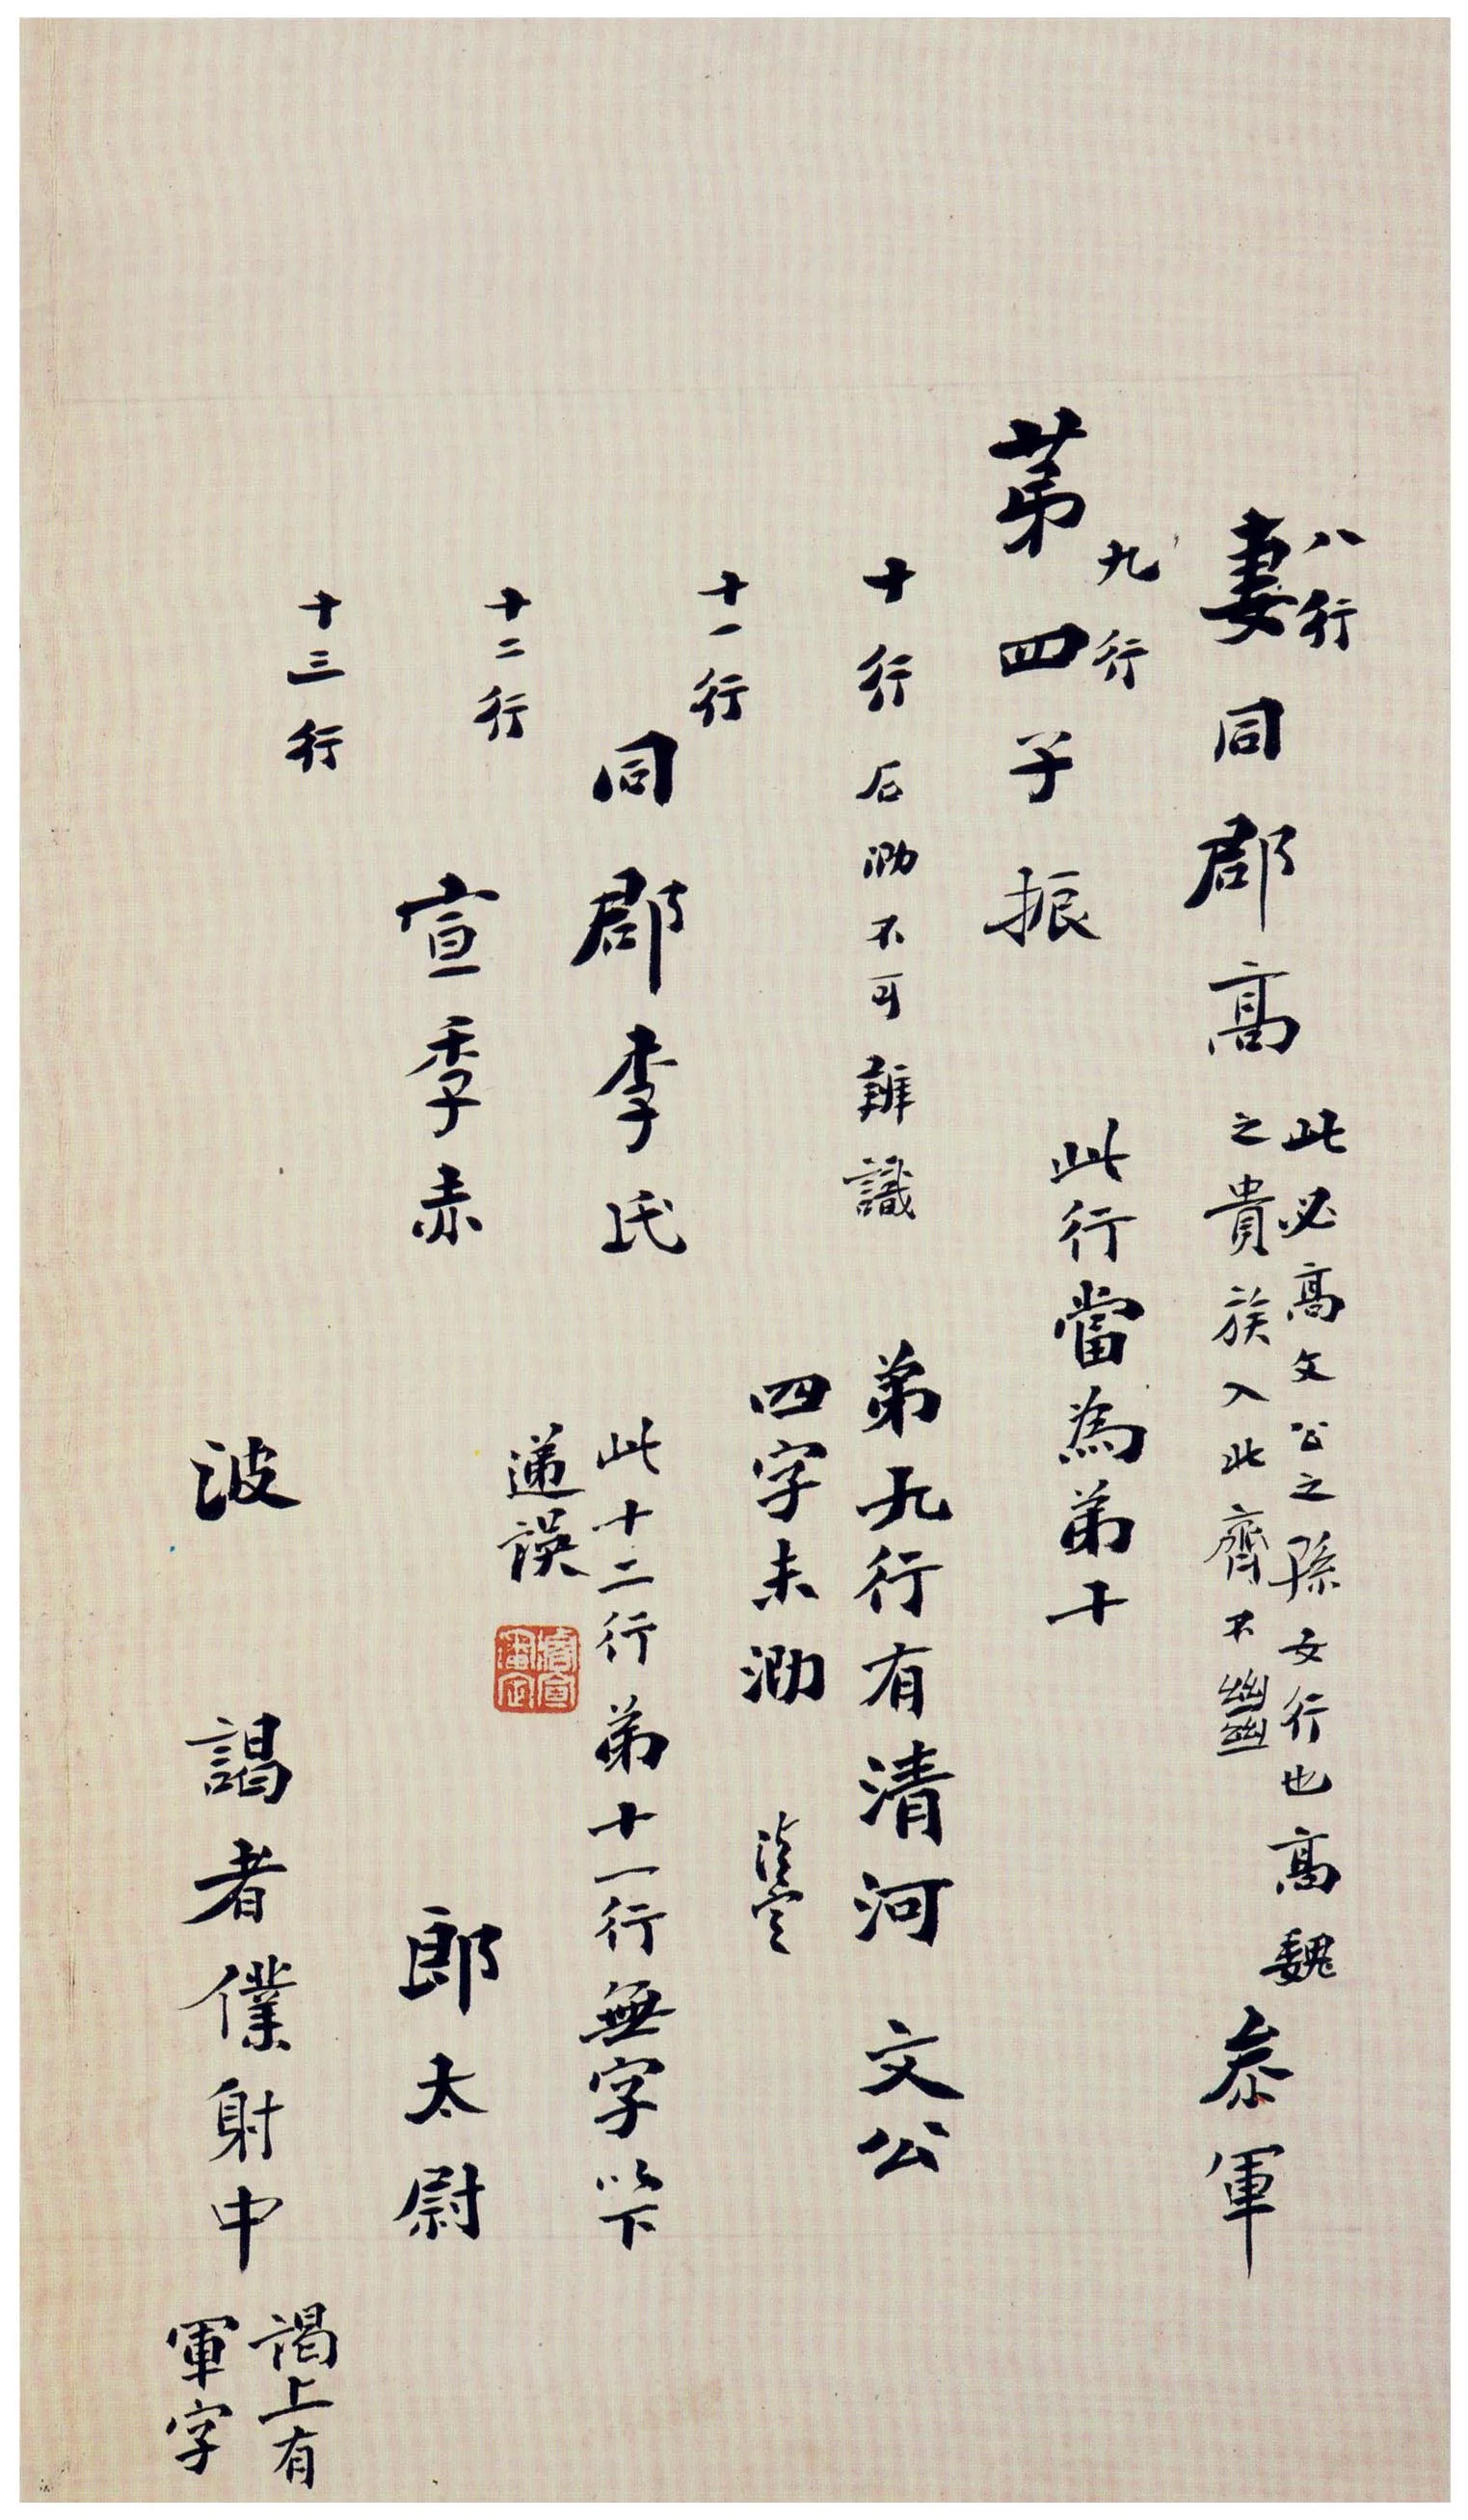 八行
妻同郡高
此必高文公之孫女行也高魏
之貴族入北齊不豐
叅軍
九行
苐四子振
此行當為弟十
十行 石泐不可辨識
弟九行有清河 文公
四字未泐
十一行
同郡李氏
此十二行弟十一行無字以下
遞誤
十二行
宣季赤
郎太尉
十三行
波 謁者僕射中
謁上有
軍字